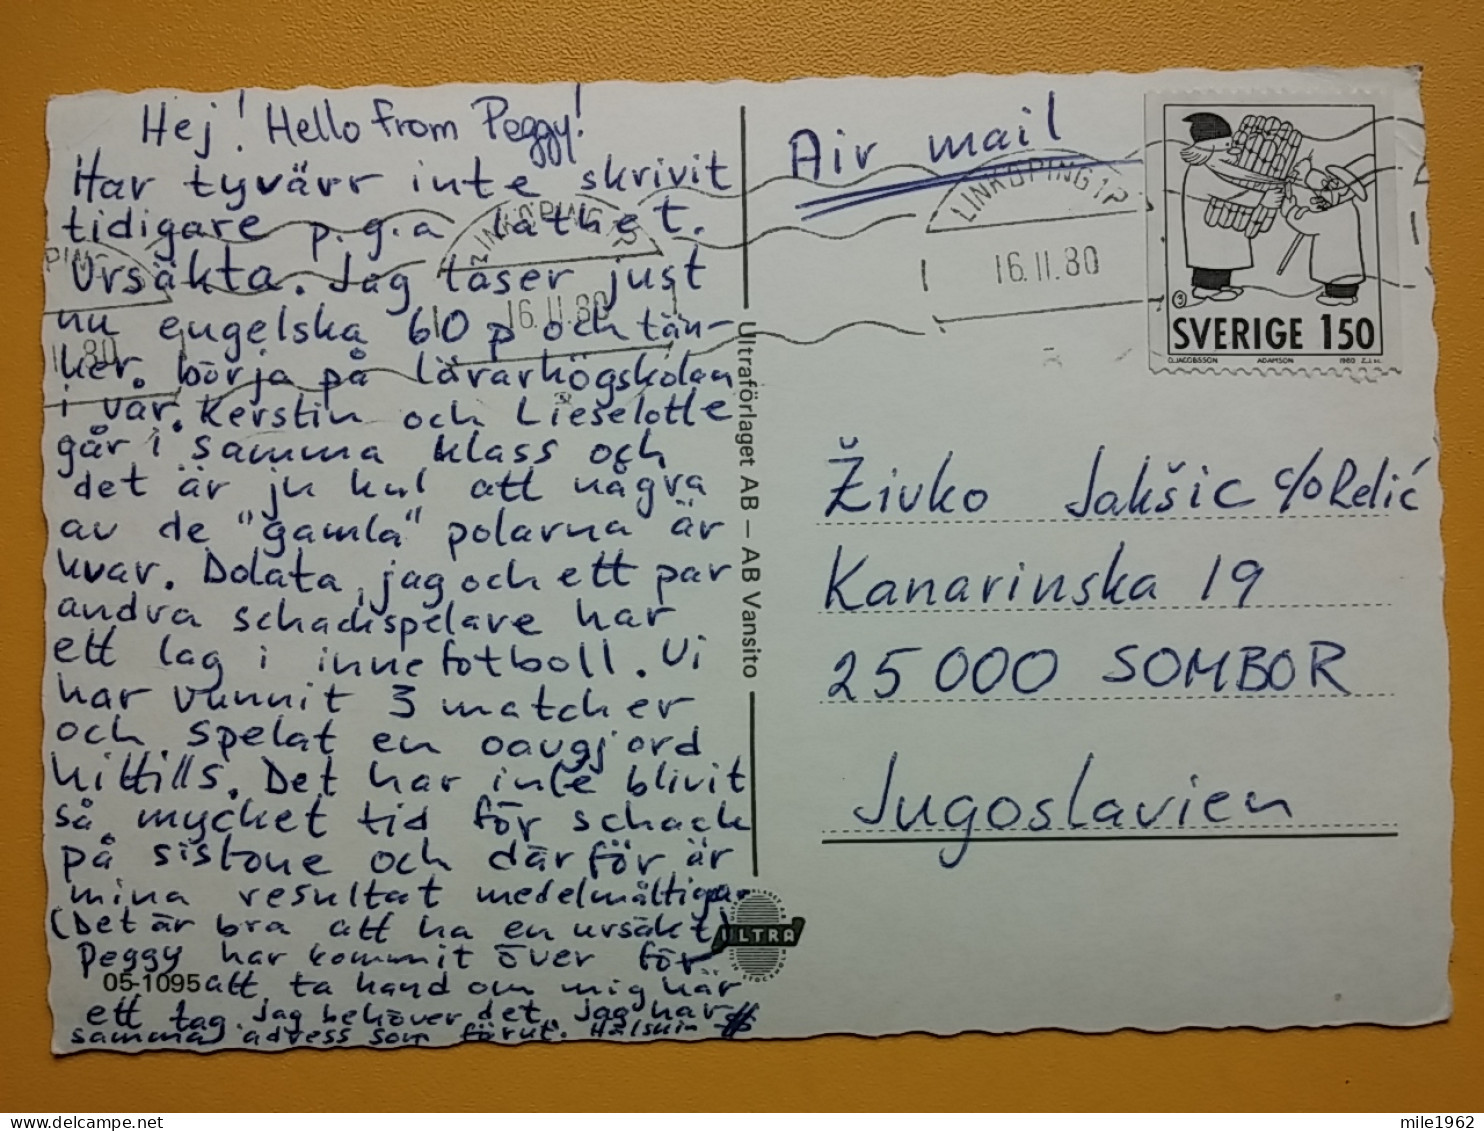 Hej! Hello from Peggy!
Har tyvärr inte skrivit
tidigare p.g.a lathet.
Ursäkta. Jag läser just
nu engelska 60 p och tän-
ker börja på lärarhögskolan
i vår. Kerstin och Lieselotte
går i samma klass och
det är ju kul att några
av de "gamla" polarna är
kvar. Dolata, jag och ett par
andra schackspelare har
ett lag i innefotboll. Vi
har vunnit 3 matcher
och spelat en oavgjord
hittills. Det har inte blivit
så mycket tid för schack
på sistone och därför är
mina resultat medelmåttiga.
(Det är bra att ha en ursäkt)
Peggy har kommit över för
att ta hand om mig här
ett tag. Jag behöver det. Jag har
samma adress som förut.
05-1095
Ultraförlaget AB – AB Vansito
ULTRA
Air mail
LINKÖPING 1
16.11.80
LINKÖPING 1
16.11.80
PING
11.80
SVERIGE 150
O.JACOBSSON ADAMSON 1980 Z.J.
3
Živko Jakšic c/o Relić
Kanarinska 19
25000 SOMBOR
Jugoslavien
mile1962